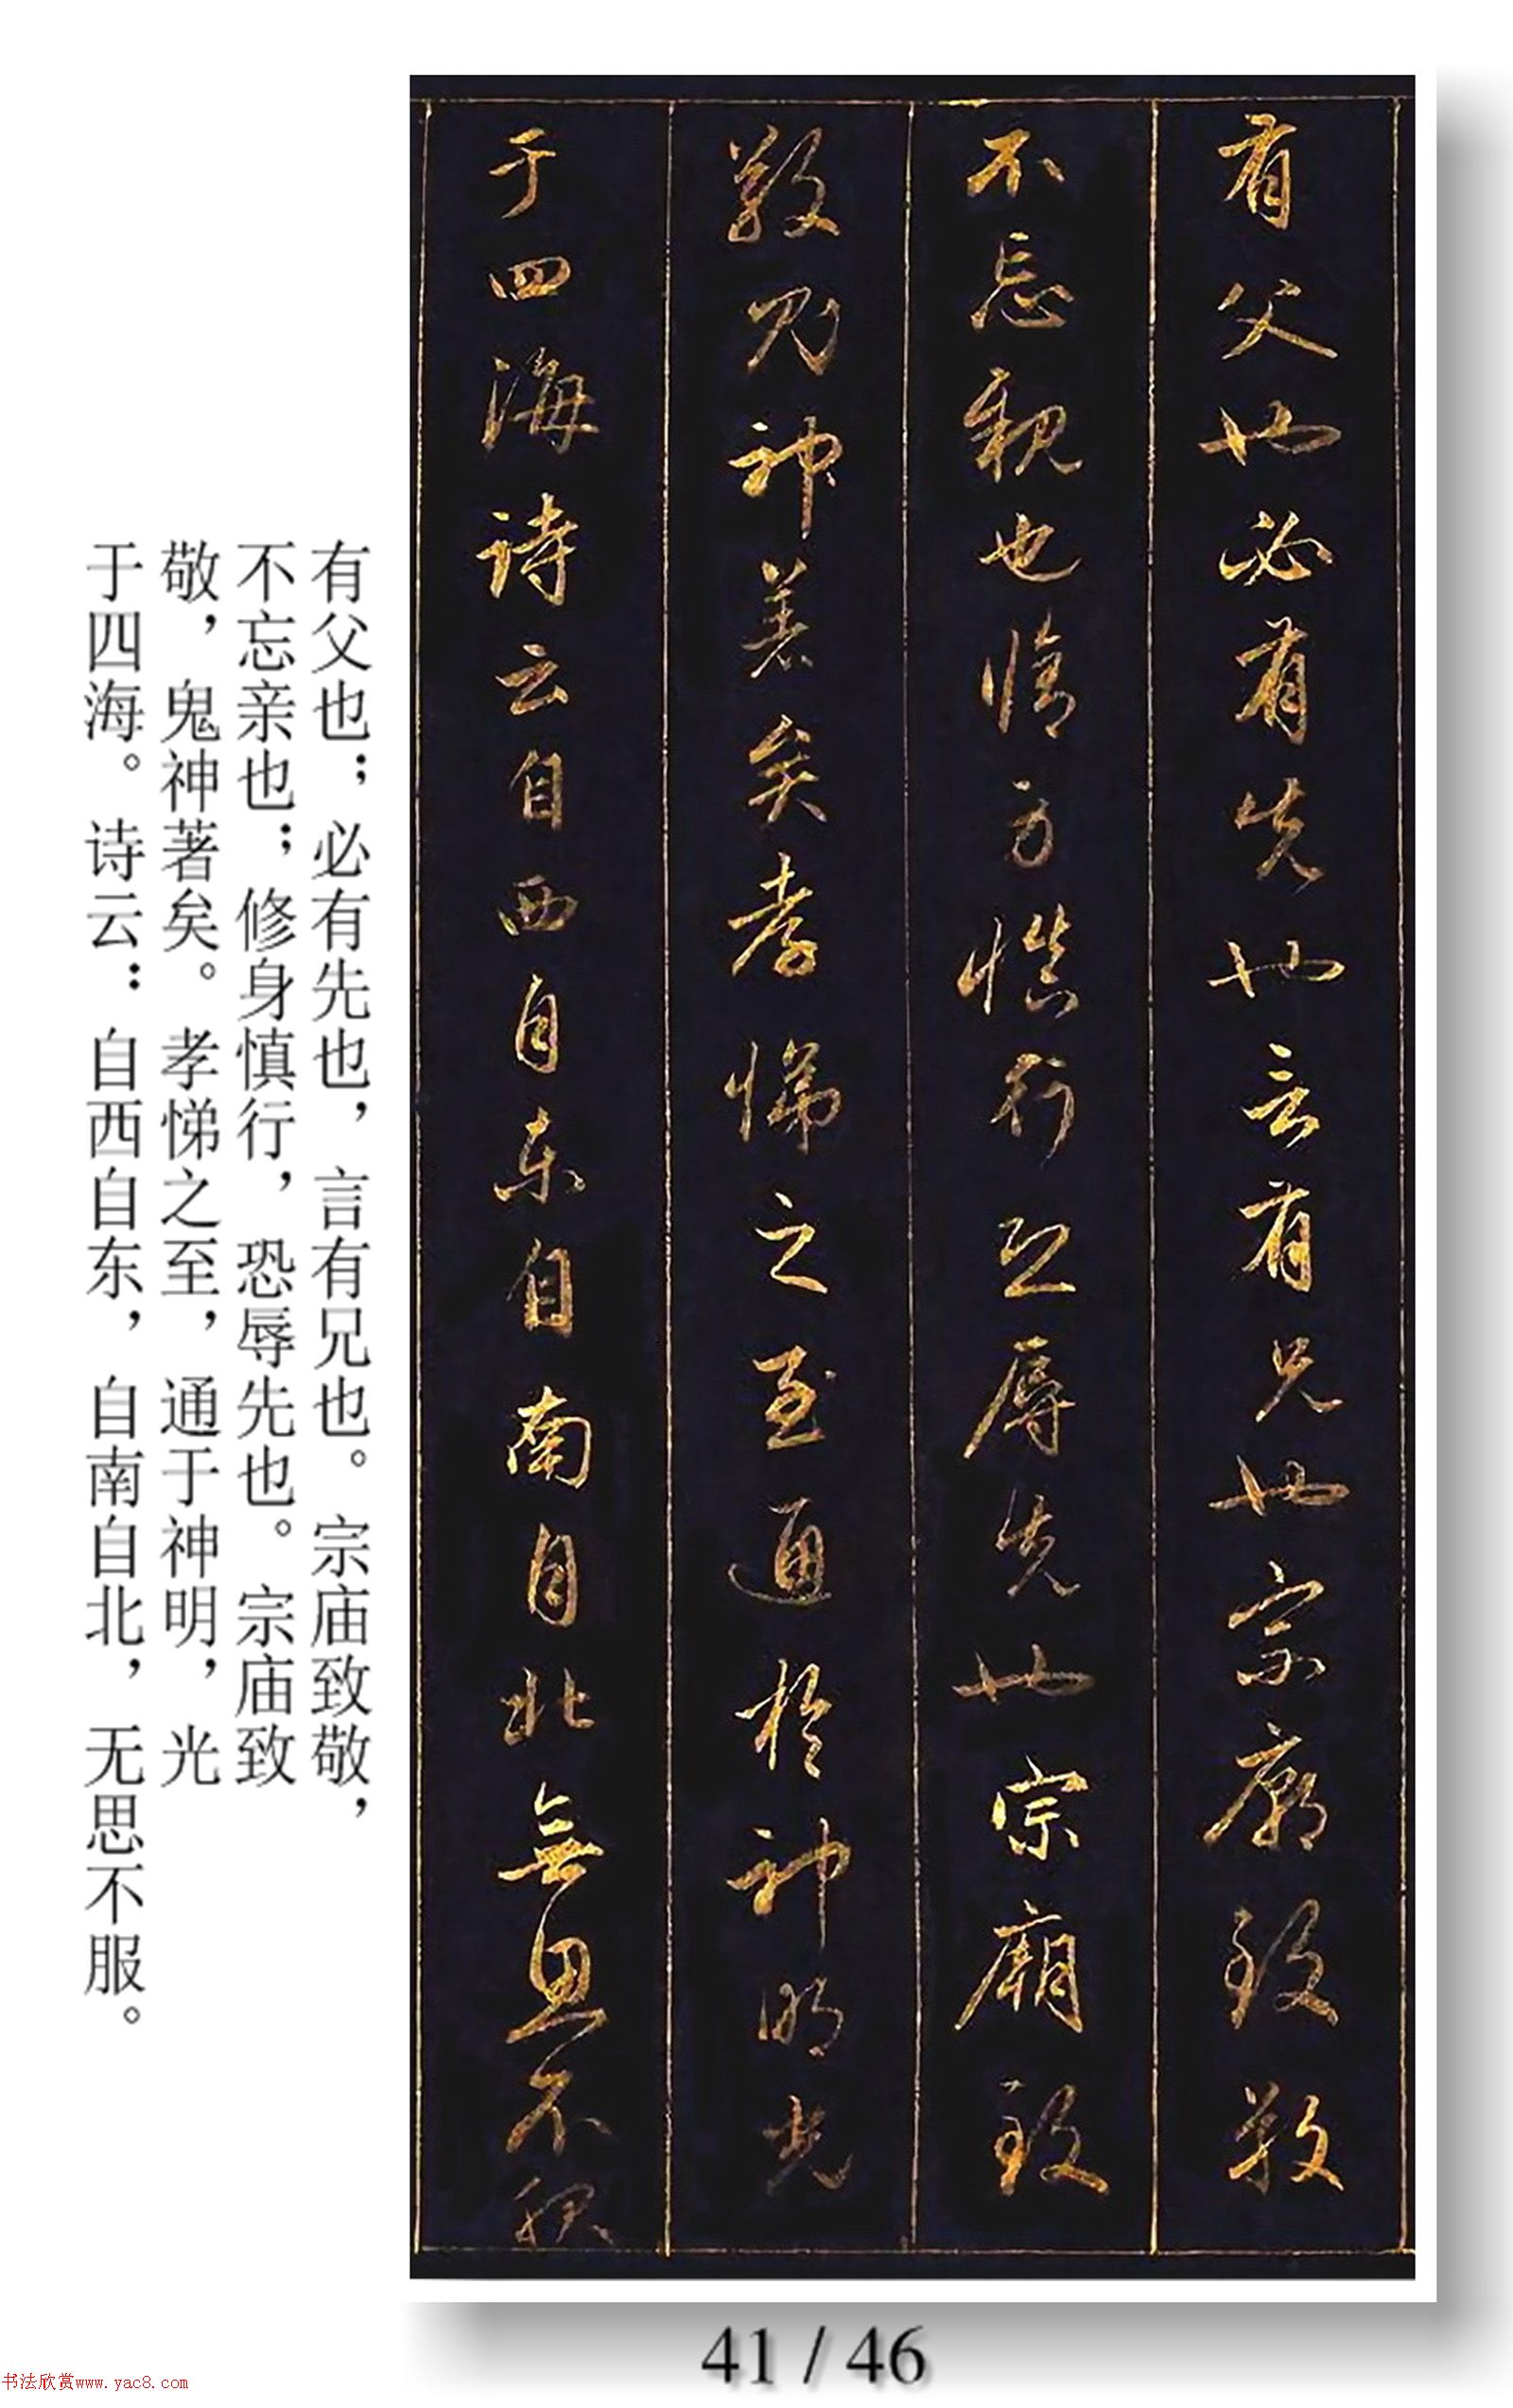 有父也必有先也言有兄也宗廟致敬
不忘親也脩身慎行恐辱先也宗廟致
敬鬼神著矣孝悌之至通於神明光
于四海詩云自西自東自南自北無思不服
有父也；必有先也，言有兄也。宗庙致敬，
不忘亲也；修身慎行，恐辱先也。宗庙致
敬，鬼神著矣。孝悌之至，通于神明，光
于四海。诗云：自西自东，自南自北，无思不服。
41 / 46
书法欣赏www.yac8.com